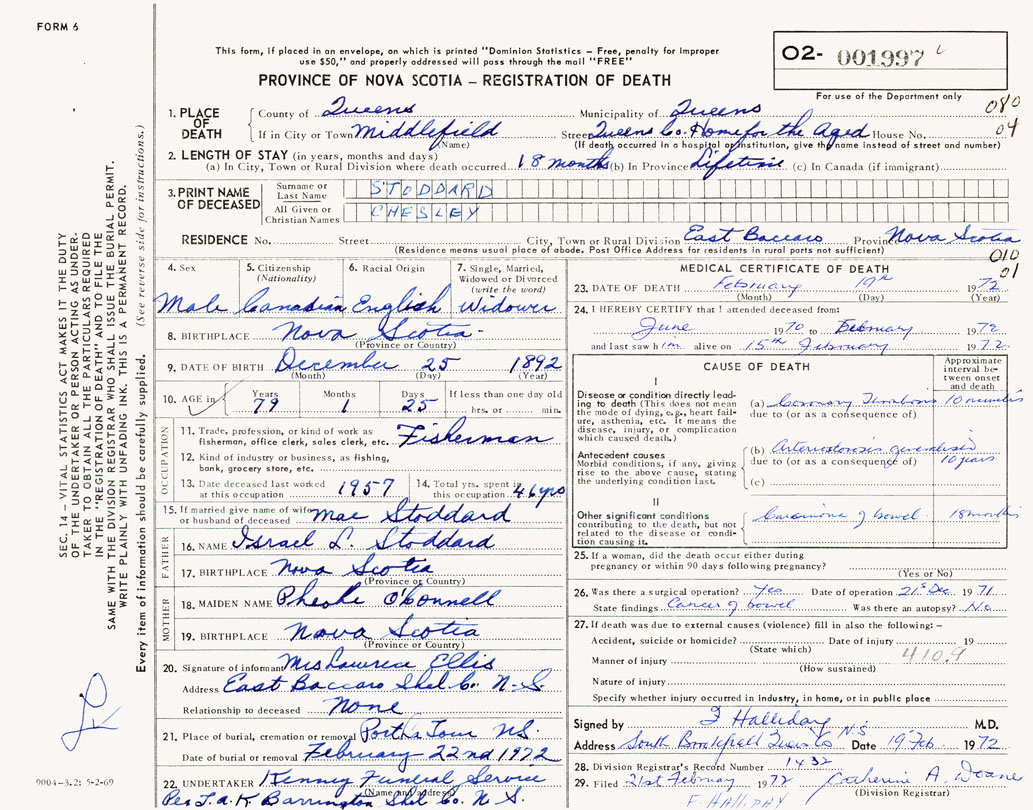 FORM 6
This form, if placed in an envelope, on which is printed "Dominion Statistics – Free, penalty for improper
use $50," and properly addressed will pass through the mail "FREE"
PROVINCE OF NOVA SCOTIA – REGISTRATION OF DEATH
O2- 001997
For use of the Department only
080
04
1. PLACE OF DEATH
County of Queens Municipality of Queens
If in City or Town Middlefield Street Queens Co. Home for the Aged House No.
(Name) (If death occurred in a hospital or institution, give the name instead of street and number)
2. LENGTH OF STAY (in years, months and days)
(a) In City, Town or Rural Division where death occurred 18 months (b) In Province Lifetime (c) In Canada (if immigrant)
3. PRINT NAME OF DECEASED
Surname or Last Name STODDARD
All Given or Christian Names CHESLEY
RESIDENCE No. Street City, Town or Rural Division East Baccaro Province Nova Scotia
(Residence means usual place of abode. Post Office Address for residents in rural parts not sufficient)
010
01
4. Sex 5. Citizenship (Nationality) 6. Racial Origin 7. Single, Married, Widowed or Divorced (write the word)
Male Canadian English Widower
8. BIRTHPLACE Nova Scotia
(Province or Country)
9. DATE OF BIRTH December 25 1892
(Month) (Day) (Year)
10. AGE in Years Months Days If less than one day old
79 1 25 hrs. or min.
OCCUPATION
11. Trade, profession, or kind of work as fisherman, office clerk, sales clerk, etc. Fisherman
12. Kind of industry or business, as fishing, bank, grocery store, etc.
13. Date deceased last worked at this occupation 1957
14. Total yrs. spent in this occupation 46 yrs
15. If married give name of wife or husband of deceased Mae Stoddard
FATHER
16. NAME Israel L. Stoddard
17. BIRTHPLACE Nova Scotia
(Province or Country)
MOTHER
18. MAIDEN NAME Pheobe O'Connell
19. BIRTHPLACE Nova Scotia
(Province or Country)
20. Signature of informant Mrs Lawrence Ellis
Address East Baccaro Shel Co. N.S.
Relationship to deceased None
21. Place of burial, cremation or removal Port La Tour NS.
Date of burial or removal February 22nd 1972
22. UNDERTAKER Kenney Funeral Service
(Name and address)
Per J.A.K Barrington Shel Co. N.S.
MEDICAL CERTIFICATE OF DEATH
23. DATE OF DEATH February 19th 1972
(Month) (Day) (Year)
24. I HEREBY CERTIFY that I attended deceased from:
June 1970 to February 1972
and last saw him alive on 15th February 1972
CAUSE OF DEATH
Approximate interval between onset and death
I
Disease or condition directly leading to death (This does not mean the mode of dying, e.g., heart failure, asthenia, etc. it means the disease, injury, or complication which caused death.)
(a) Coronary Thrombosis 10 minutes
due to (or as a consequence of)
Antecedent causes
Morbid conditions, if any, giving rise to the above cause, stating the underlying condition last.
(b) Arteriosclerosis generalised 10 years
due to (or as a consequence of)
(c)
II
Other significant conditions contributing to the death, but not related to the disease or condition causing it.
Carcinoma of bowel 18 months
25. If a woman, did the death occur either during
pregnancy or within 90 days following pregnancy?
(Yes or No)
26. Was there a surgical operation? Yes Date of operation 21st Dec. 1971
State findings Cancer of bowel Was there an autopsy? No
27. If death was due to external causes (violence) fill in also the following: –
Accident, suicide or homicide? Date of injury 19
(State which)
410.9
Manner of injury
(How sustained)
Nature of injury
Specify whether injury occurred in industry, in home, or in public place
Signed by F Halliday M.D.
Address South Brookfield Queens Co N.S. Date 19 Feb 1972
28. Division Registrar's Record Number 1432
29. Filed 21st February 1972 Catherine A. Doane
(Division Registrar)
F. HALLIDAY
SEC. 14 – VITAL STATISTICS ACT MAKES IT THE DUTY
OF THE UNDERTAKER OR PERSON ACTING AS UNDERTAKER
TO OBTAIN ALL THE PARTICULARS REQUIRED
IN THE "REGISTRATION OF DEATH" AND TO FILE THE
SAME WITH THE DIVISION REGISTRAR WHO SHALL ISSUE THE BURIAL PERMIT.
WRITE PLAINLY WITH UNFADING INK. THIS IS A PERMANENT RECORD.
Every item of information should be carefully supplied. (See reverse side for instructions.)
9004-3.2: 5-2-69